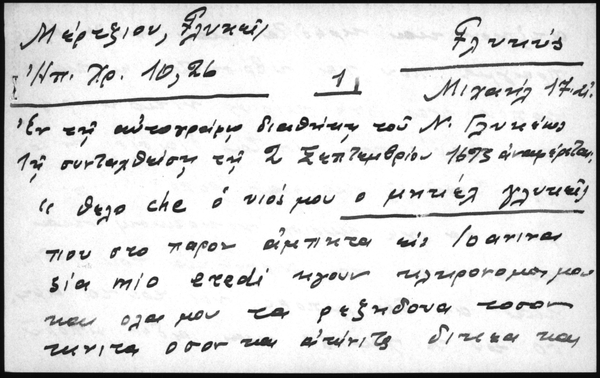 Μέρτζιου, Γλυκεῖς
Γλυκύς
Ἠπ. Χρ. 10, 26
1
Μιχαήλ 17
Ἐν τῇ αὐτογράφῳ διαθήκῃ τοῦ Ν. Γλυκέως
τῇ συνταχθείσῃ τῇ 2 Σεπτεμβρίου 1693 ἀναφέρεται,
" θελο che ὁ υιός μου ο μηκέλ γλυκεῖς
που στο παρον ἀμπιτα εἰς Ioanina
sia mio eredi ηγουν κληρονομοι μου
και ολα μου τα ρεζηδουα τοσον
κινιτα οσον και ακίνιτς δικεα και